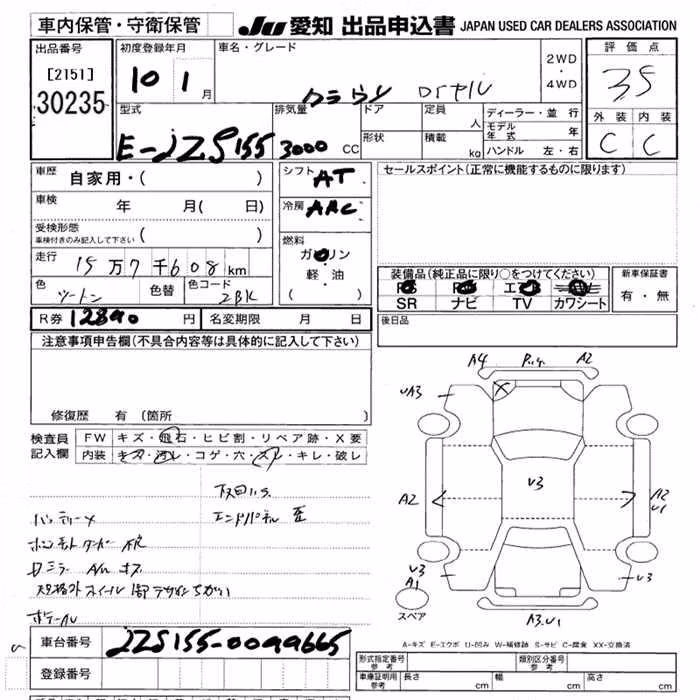 車内保管・守衛保管
JU 愛知 出品申込書 JAPAN USED CAR DEALERS ASSOCIATION
出品番号
[2151]
30235
初度登録年月
10 1 月
車名・グレード
クラウン ロイヤル
2WD
・
4WD
評価点
外装 内装
C C
型式
E-JZS155
排気量
3000 CC
ドア
形状
定員 人
積載 kg
ディーラー・並行
モデル年式 年
ハンドル 左・右
車歴 自家用・( )
車検 年 月( 日)
受検形態
車検付きのみ記入して下さい ( )
走行 15万7千608km
色 ツートン 色替 色コード 2BK
シフト AT
冷房 AAC
燃料
ガソリン
・
軽・油
( )
セールスポイント(正常に機能するものに限ります)
装備品(純正品に限り○をつけてください)
PS PW エアB
SR ナビ TV カワシート
新車保証書
有・無
R券 12890 円 名変期限 月 日
後日品
注意事項申告欄(不具合内容等は具体的に記入して下さい)
修復歴 有(箇所 )
検査員記入欄
FW キズ・飛石・ヒビ割・リペア跡・X要
内装 キズ・汚レ・コゲ・穴・スレ・キレ・破レ
下回りサ
バッテリーメ エンドパネル歪
Dミラー A/n キズ
ボデーAU
A4 A2
UA3
A2 U3 A2
U1
U3
A1
スペア
U3
A3.U1
A-キズ E-エクボ U-凹み W-補修跡 S-サビ C-腐食 XX-交換済
車台番号 JZS155-0099665
登録番号
形式指定番号 参考
類別区分番号 参考
車庫証明用 参考 長さ cm 幅 cm 高さ cm